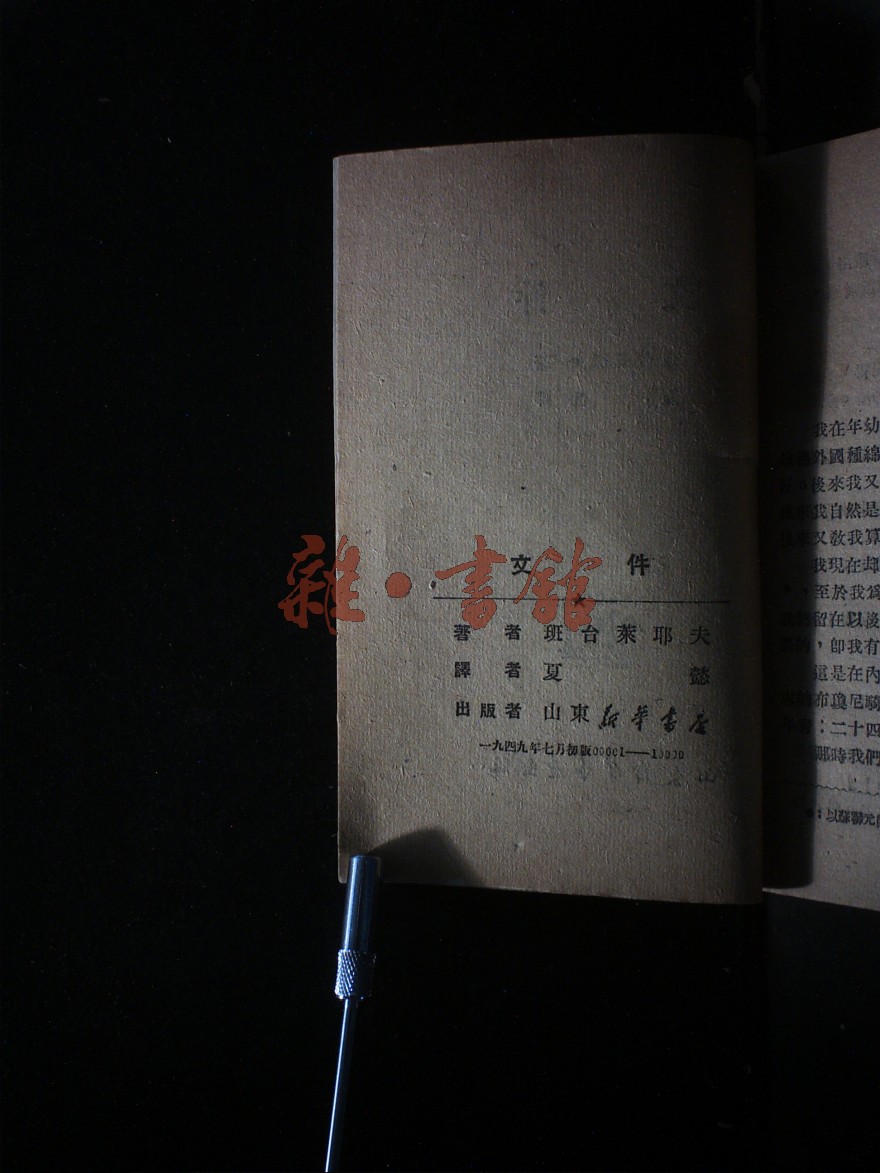 文件
著者 班台萊耶夫
譯者 夏懿
出版者 山東新華書店
一九四九年七月初版00001——10000
雜·書館
我在年幼
外國種綿
後來我又
我自然是
又教我算
我現在却
，至於我爲
留在以後
的，卽我有
這是在內
布瓊尼騎
：二十四
那時我們
：以蘇聯元